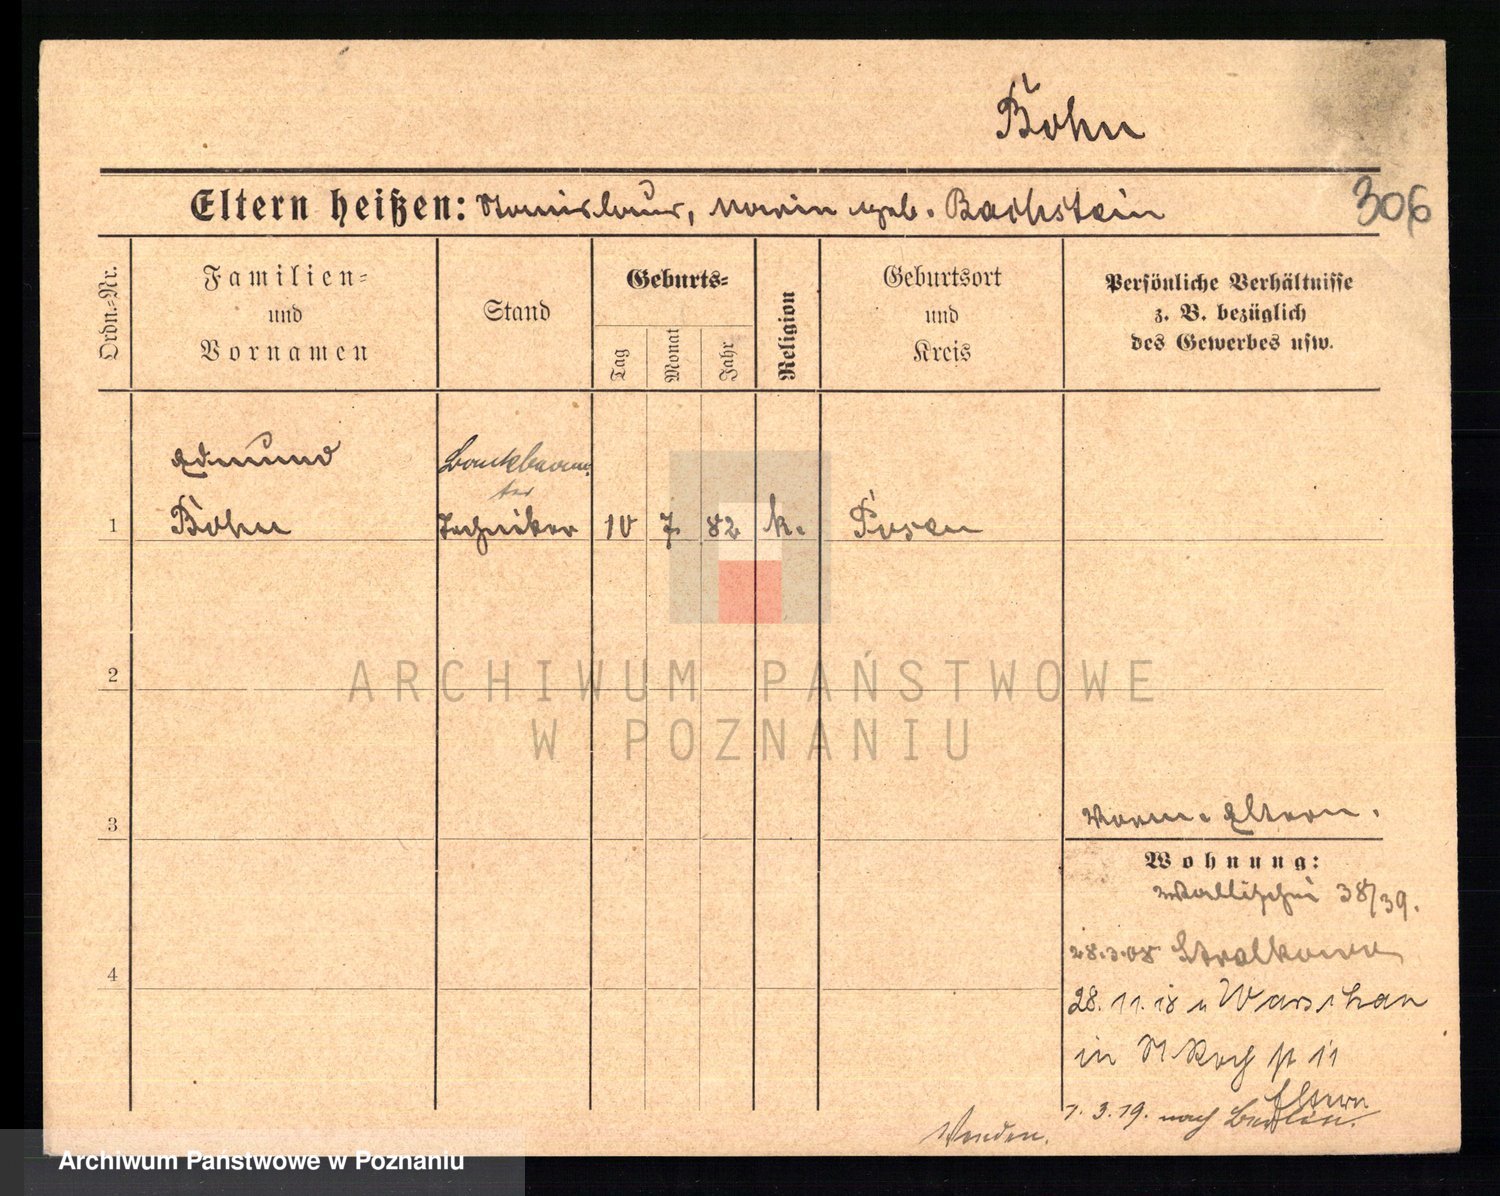 Bohn
306
Eltern heißen: Stanislaus, Marie geb. Bachstein
Ordn.-Nr.
Familien-
und
Vornamen
Stand
Geburts-
Tag
Monat
Jahr
Religion
Geburtsort
und
Kreis
Persönliche Verhältnisse
z. B. bezüglich
des Gewerbes usw.
Edmund
Bankbeam-
ter
1 Bohn Techniker 10 7. 82 k. Posen
2
ARCHIWUM PAŃSTWOWE
W POZNANIU
3
Eltern.
Wohnung:
Wallischei 38/39.
28.3.08 Stralkowo
4
28. 11. 18 Warschau
in 11
Eltern
1. 3. 19. nach Berlin.
Wenden.
Archiwum Państwowe w Poznaniu